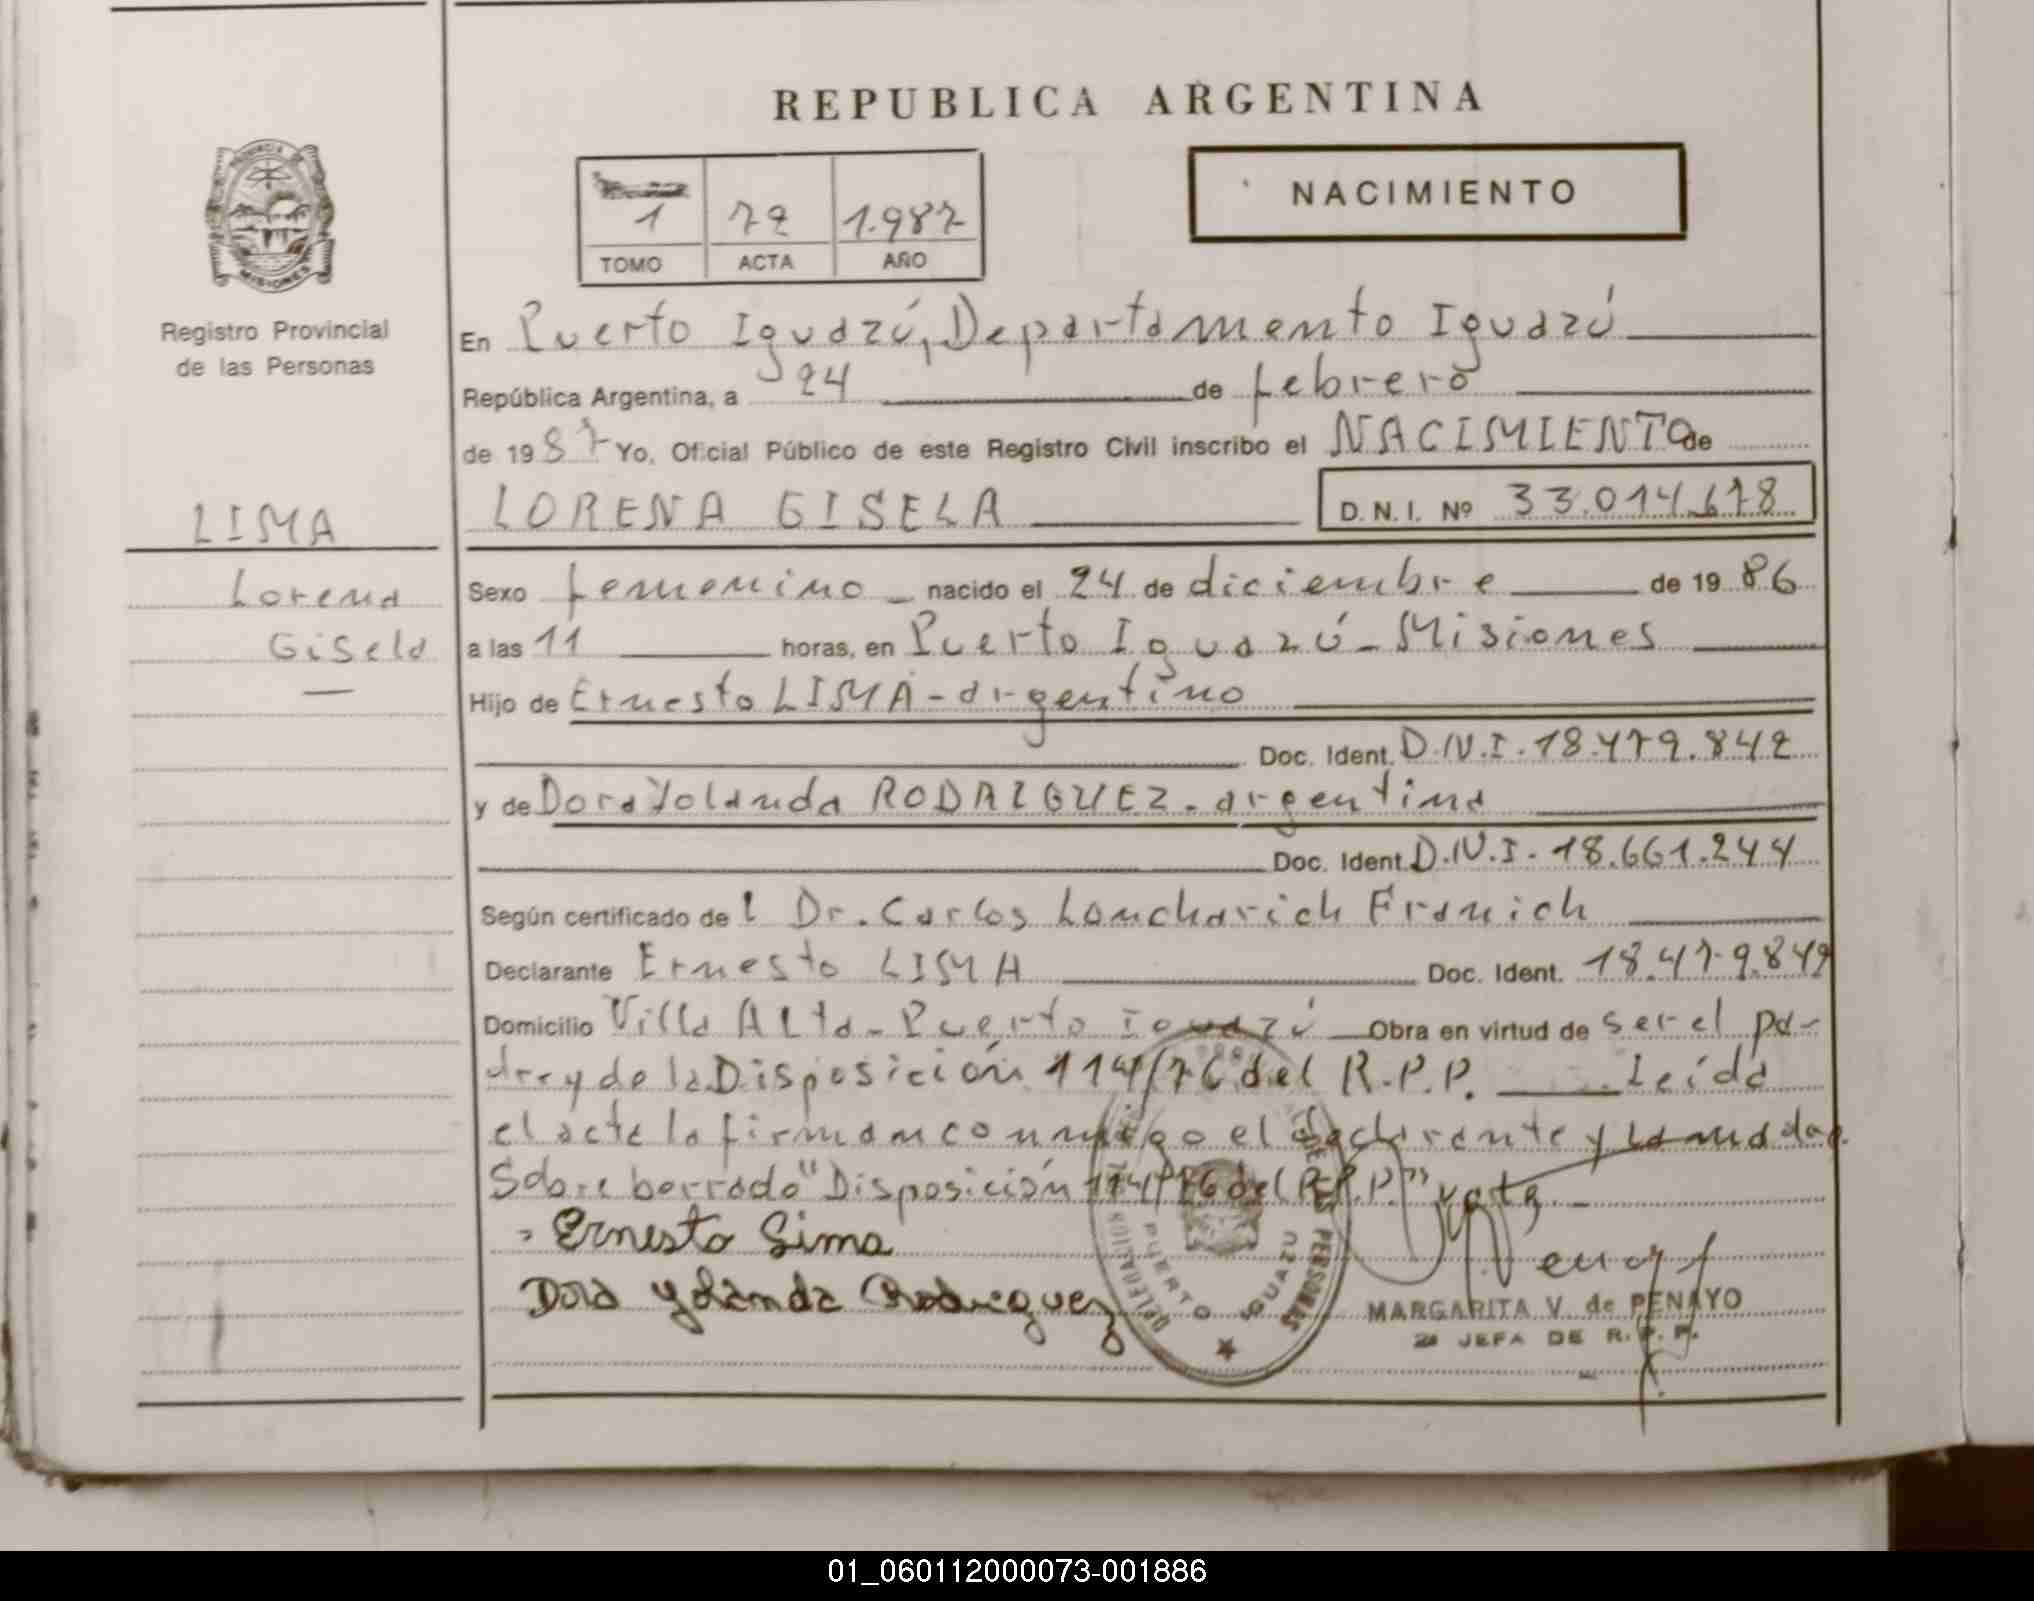 REPUBLICA ARGENTINA
PROVINCIA DE
MISIONES
Registro Provincial
de las Personas
1 72 1.987
TOMO ACTA AÑO
NACIMIENTO
En Puerto Iguazú, Departamento Iguazú
República Argentina, a 24 de febrero
de 1987 Yo, Oficial Público de este Registro Civil inscribo el NACIMIENTO de
LIMA
LORENA GISELA D. N. I. Nº 33.014.678
Lorena
Gisela
Sexo femenino nacido el 24 de diciembre de 1986
a las 11 horas, en Puerto Iguazú - Misiones
Hijo de Ernesto LIMA - argentino
Doc. Ident. D.N.I. 18.479.842
y de Dora Yolanda RODRIGUEZ - argentina
Doc. Ident. D.N.I. 18.661.244
Según certificado del Dr. Carlos Loncharich Franich
Declarante Ernesto LIMA Doc. Ident. 18.479.842
Domicilio Villa Alta - Puerto Iguazú Obra en virtud de ser el pa-
dre y de la Disposición 114/76 del R.P.P. Leída
el acta la firman conmigo el declarante y la madre.
Sobre borrado "Disposición 114/76 del R.P.P." vale
Ernesto Lima
Dora Yolanda Rodriguez
DELEGACION PERSONAS
PUERTO IGUAZU
MARGARITA V. de PENAYO
2a JEFA DE R. P. P.
01_060112000073-001886